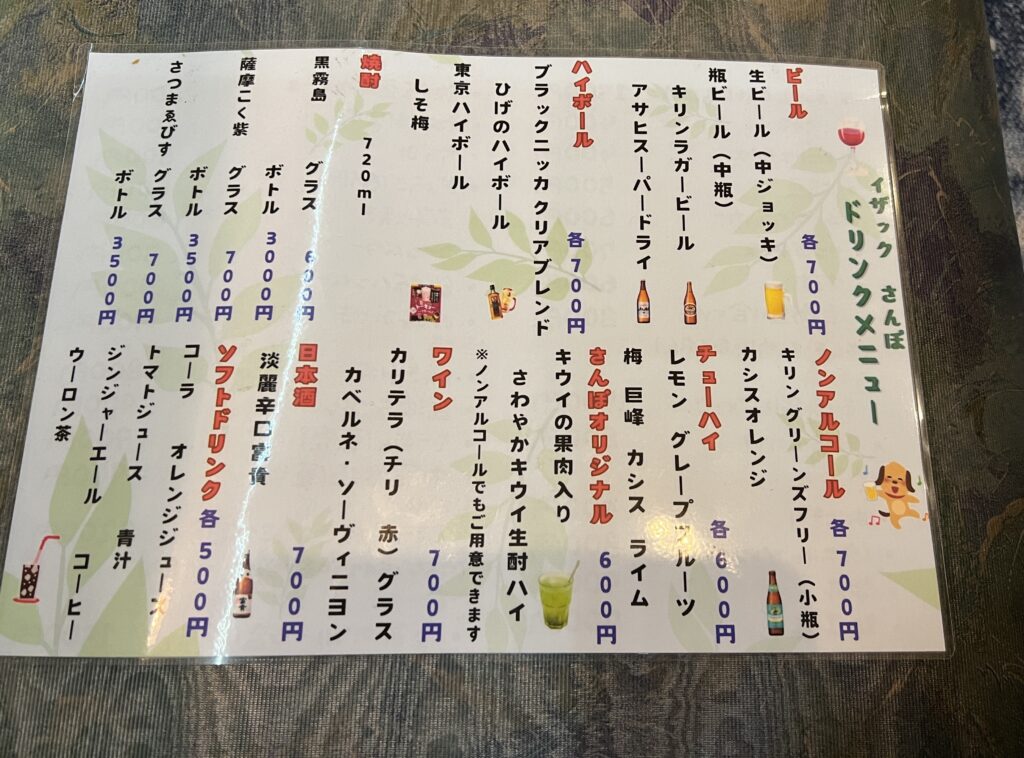 イザック さんぽ
ドリンクメニュー
ビール 各700円
生ビール（中ジョッキ）
瓶ビール（中瓶）
キリンラガービール
アサヒスーパードライ
ハイボール 各700円
ブラックニッカ クリアブレンド
ひげのハイボール
東京ハイボール
しそ梅
焼酎 720ml
黒霧島 グラス 600円
ボトル 3000円
薩摩こく紫 グラス 700円
ボトル 3500円
さつまゑびす グラス 700円
ボトル 3500円
ノンアルコール 各700円
キリン グリーンズフリー（小瓶）
カシスオレンジ
チューハイ 各600円
レモン グレープフルーツ
梅 巨峰 カシス ライム
さんぽオリジナル 600円
キウイの果肉入り
さわやかキウイ生酎ハイ
※ノンアルコールでもご用意できます
ワイン 700円
カリテラ（チリ 赤）グラス
カベルネ・ソーヴィニヨン
日本酒 700円
淡麗辛口富貴
ソフトドリンク 各500円
コーラ オレンジジュース
トマトジュース
ジンジャーエール 青汁
ウーロン茶 コーヒー